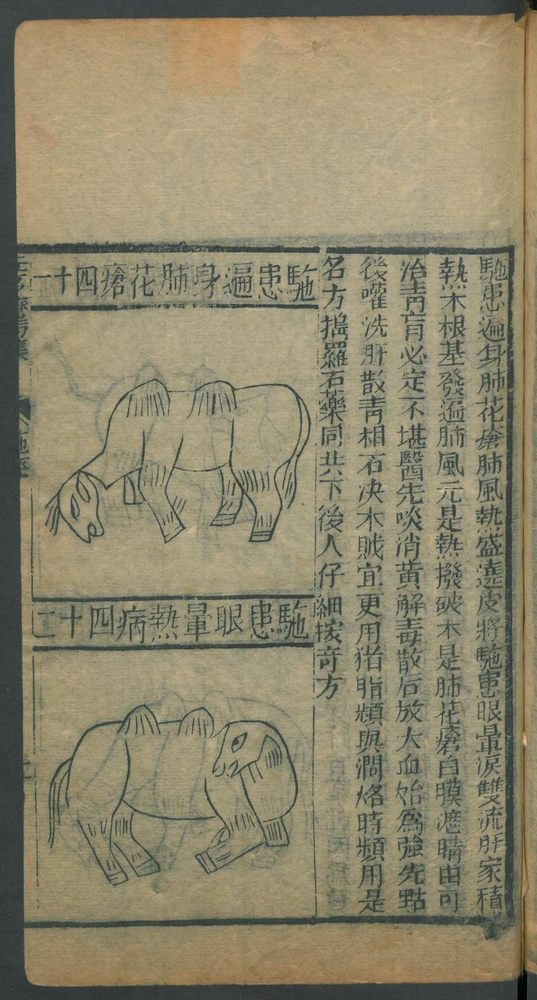 駞患遍身肺花瘡肺風熱盛達皮將駞患眼暈淚雙流肝家積
熱木根基發遍肺風元是熱撥破木是肺花瘡白膜遮睛由可
治青肓必定不堪醫先啖消黄解毒散后放大血始爲強先點
後嚾洗肝散靑相石决木賊宜更用猪脂頻與潤烙時頻用是
名方搗羅石藥同共下後人仔細採奇方
駞患遍身肺花瘡四十一
駞患眼暈熱病四十二